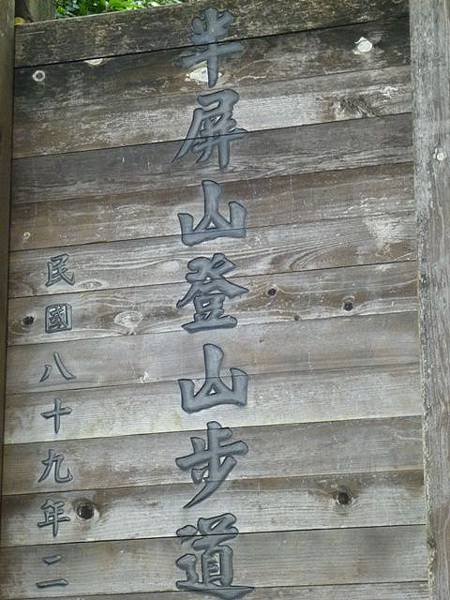 半屏山登山步道
民國八十九年二